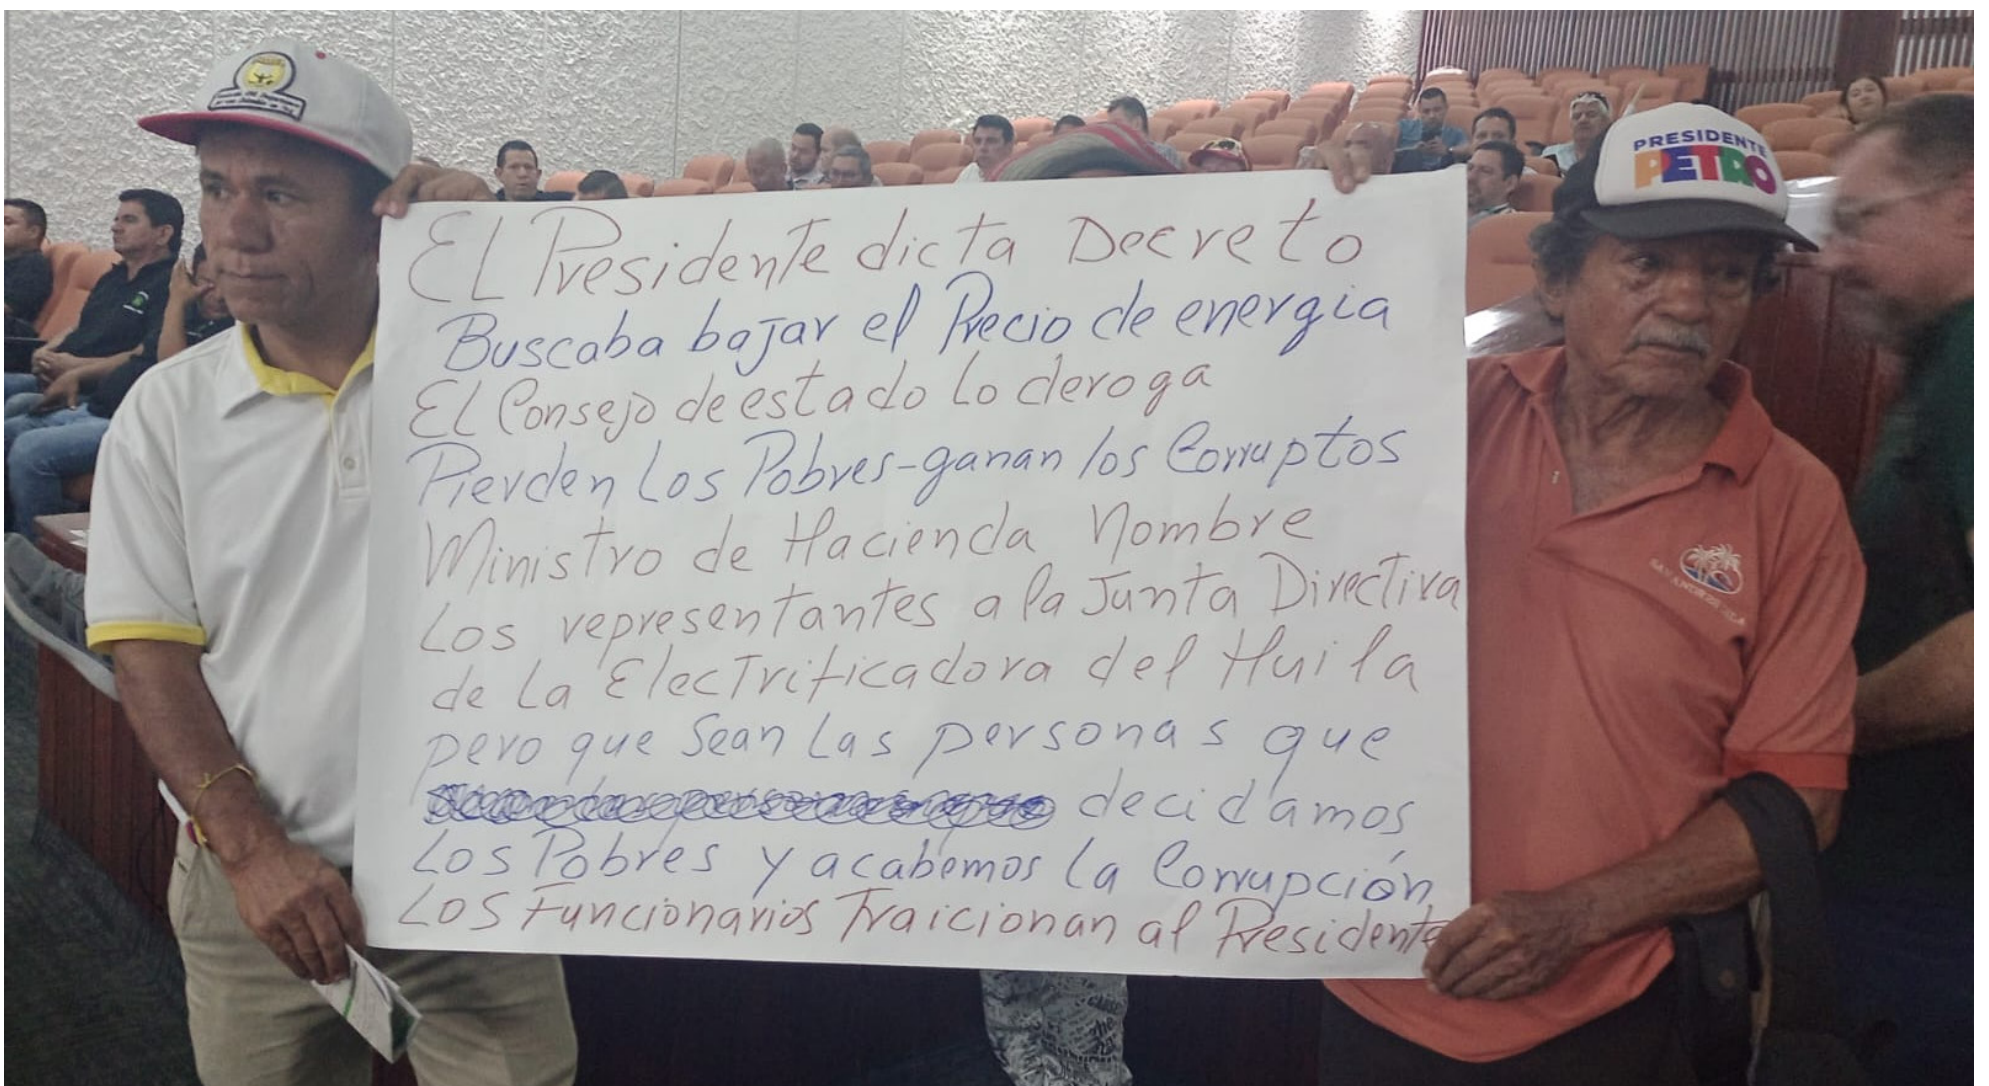 PRESIDENTE
PETRO
El Presidente dicta Decreto
Buscaba bajar el Precio de energia
El Consejo de estado lo deroga
Pierden Los Pobres-ganan los Corruptos
Ministro de Hacienda Nombre
Los representantes a la Junta Directiva
de la Electrificadora del Huila
pero que sean Las personas que
decidamos
Los Pobres y acabemos la Corrupción
Los Funcionarios Traicionan al Presidente